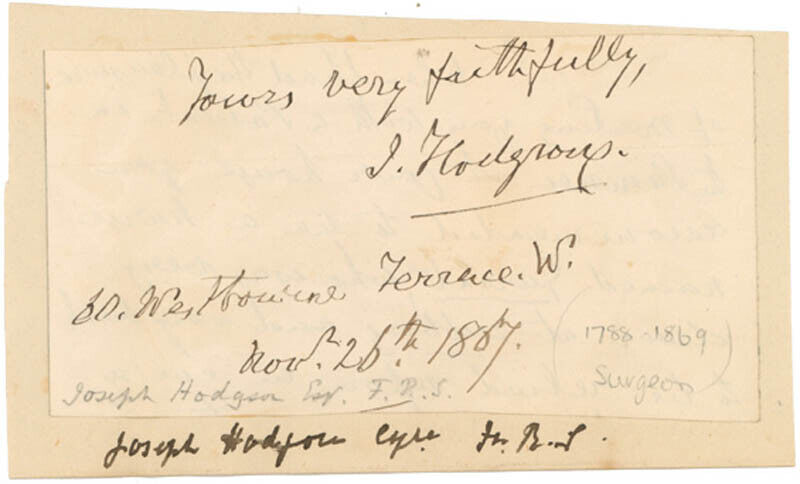 Yours very faithfully,
J. Hodgson.
60. Westbourne Terrace. W.
Novr. 26th. 1867.
(1788-1869)
Surgeon
Joseph Hodgson Esqr. F.R.S.
Joseph Hodgson Esqre F.R.S.